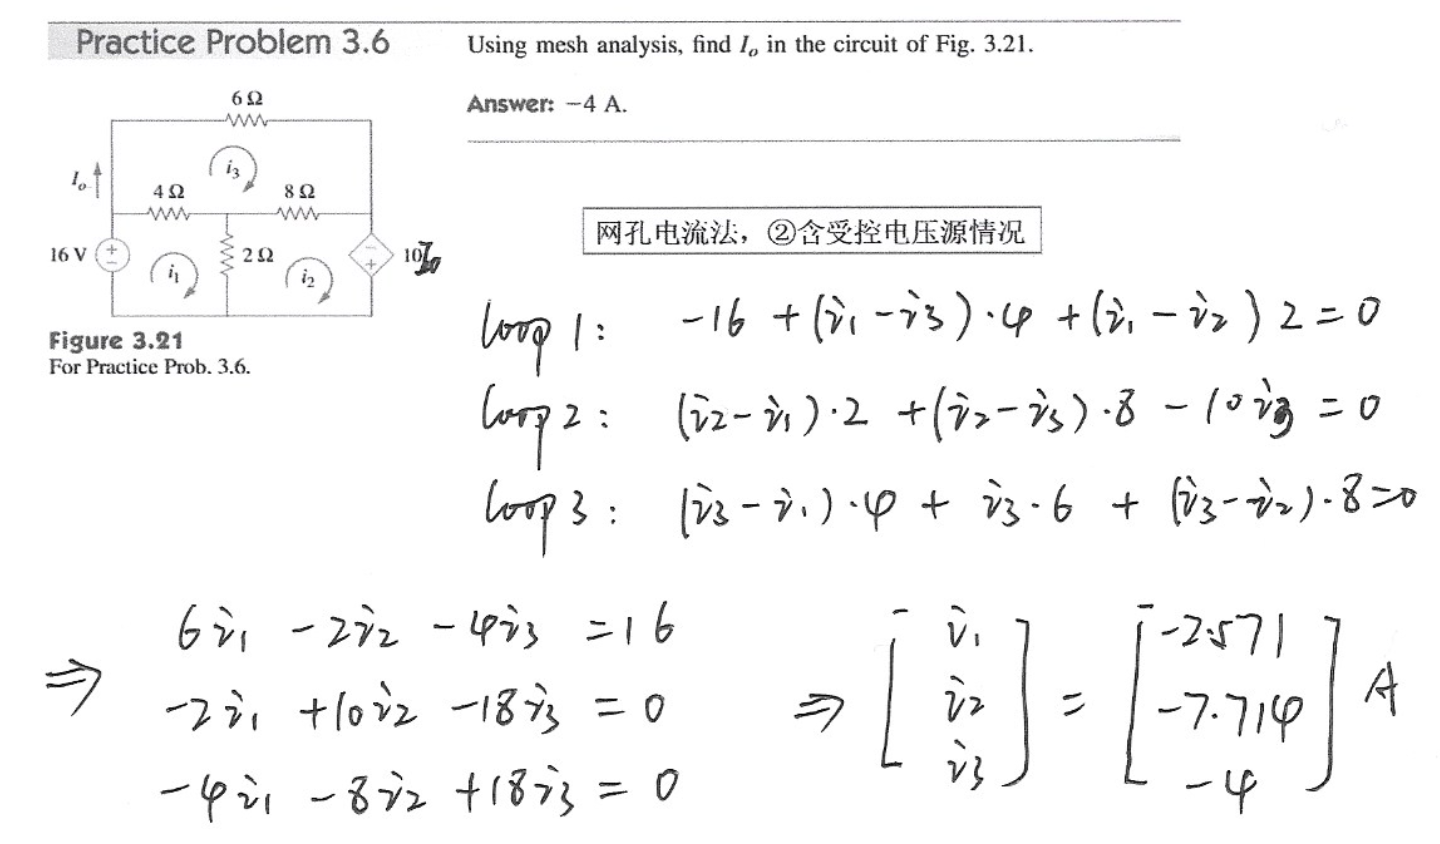 Practice Problem 3.6
Using mesh analysis, find Iₒ in the circuit of Fig. 3.21.
Answer: −4 A.
6 Ω
i₃
Iₒ
4 Ω
8 Ω
16 V
+
−
i₁
2 Ω
i₂
−
+
10Iₒ
Figure 3.21
For Practice Prob. 3.6.
网孔电流法，②含受控电压源情况
loop 1: -16 + (i₁ - i₃)·4 + (i₁ - i₂)2 = 0
loop 2: (i₂ - i₁)·2 + (i₂ - i₃)·8 - 10i₃ = 0
loop 3: (i₃ - i₁)·4 + i₃·6 + (i₃ - i₂)·8 = 0
6i₁ - 2i₂ - 4i₃ = 16
⇒ -2i₁ + 10i₂ - 18i₃ = 0
-4i₁ - 8i₂ + 18i₃ = 0
⇒ [i₁ i₂ i₃] = [-2.571 -7.714 -4] A